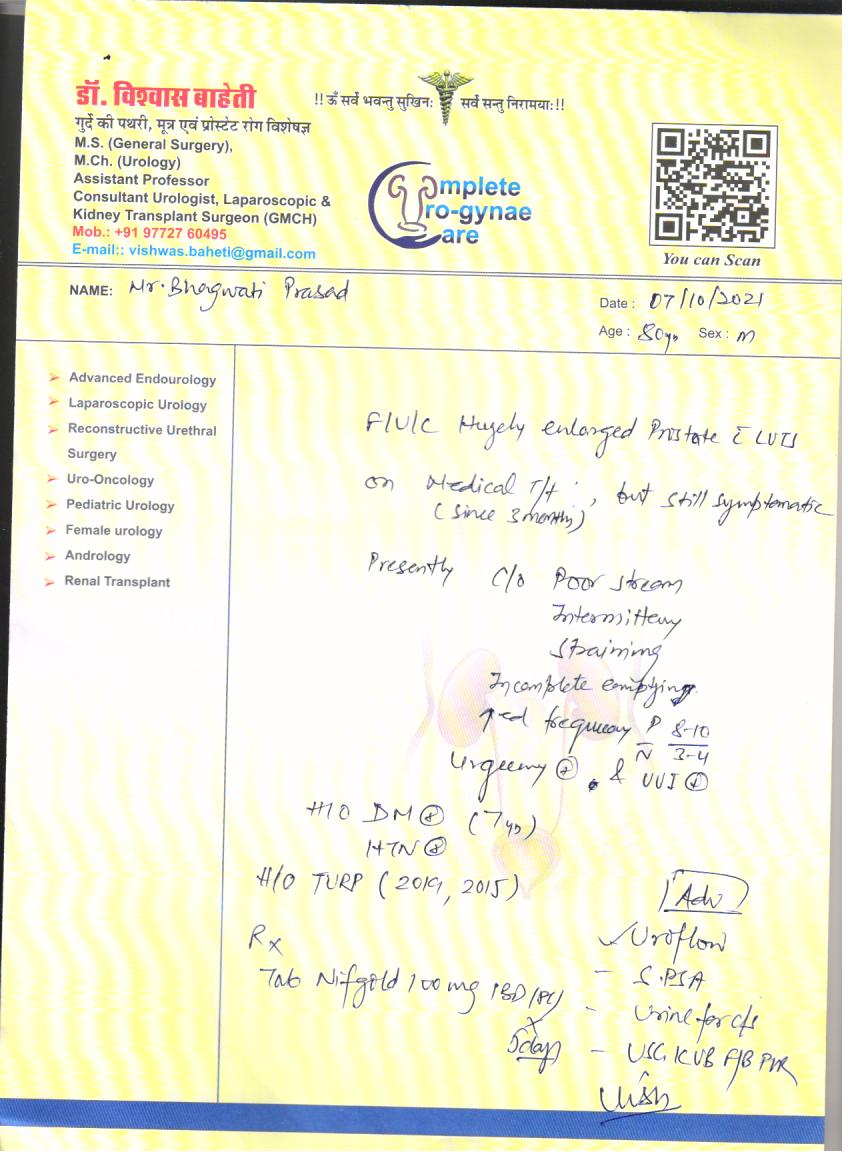 डॉ. विश्वास बाहेती
गुर्दे की पथरी, मूत्र एवं प्रोस्टेट रोग विशेषज्ञ
M.S. (General Surgery),
M.Ch. (Urology)
Assistant Professor
Consultant Urologist, Laparoscopic &
Kidney Transplant Surgeon (GMCH)
Mob.: +91 97727 60495
E-mail:: vishwas.baheti@gmail.com
!! ॐ सर्वे भवन्तु सुखिनः सर्वे सन्तु निरामयाः !!
Complete
Uro-gynae
Care
You can Scan
NAME: Mr. Bhagwati Prasad
Date : 07/10/2021
Age : 80yr Sex : M
Advanced Endourology
Laparoscopic Urology
Reconstructive Urethral
Surgery
Uro-Oncology
Pediatric Urology
Female urology
Andrology
Renal Transplant
F/U/C Hugely enlarged Prostate c̄ LUTS
on Medical T/t, but still symptomatic
(since 3 months)
Presently C/o Poor stream
Intermittency
Straining
Incomplete emptying
↑ed frequency D 8-10
N 3-4
Urgency ⊕ & UUI ⊕
H/O DM ⊕ (7yr)
HTN ⊕
H/O TURP (2019, 2015)
Rx
Tab Nifgold 100mg 1BD
x
5days
Adv
✓ Uroflow
- S.PSA
- Urine for c/s
- USG KUB F/B PVR